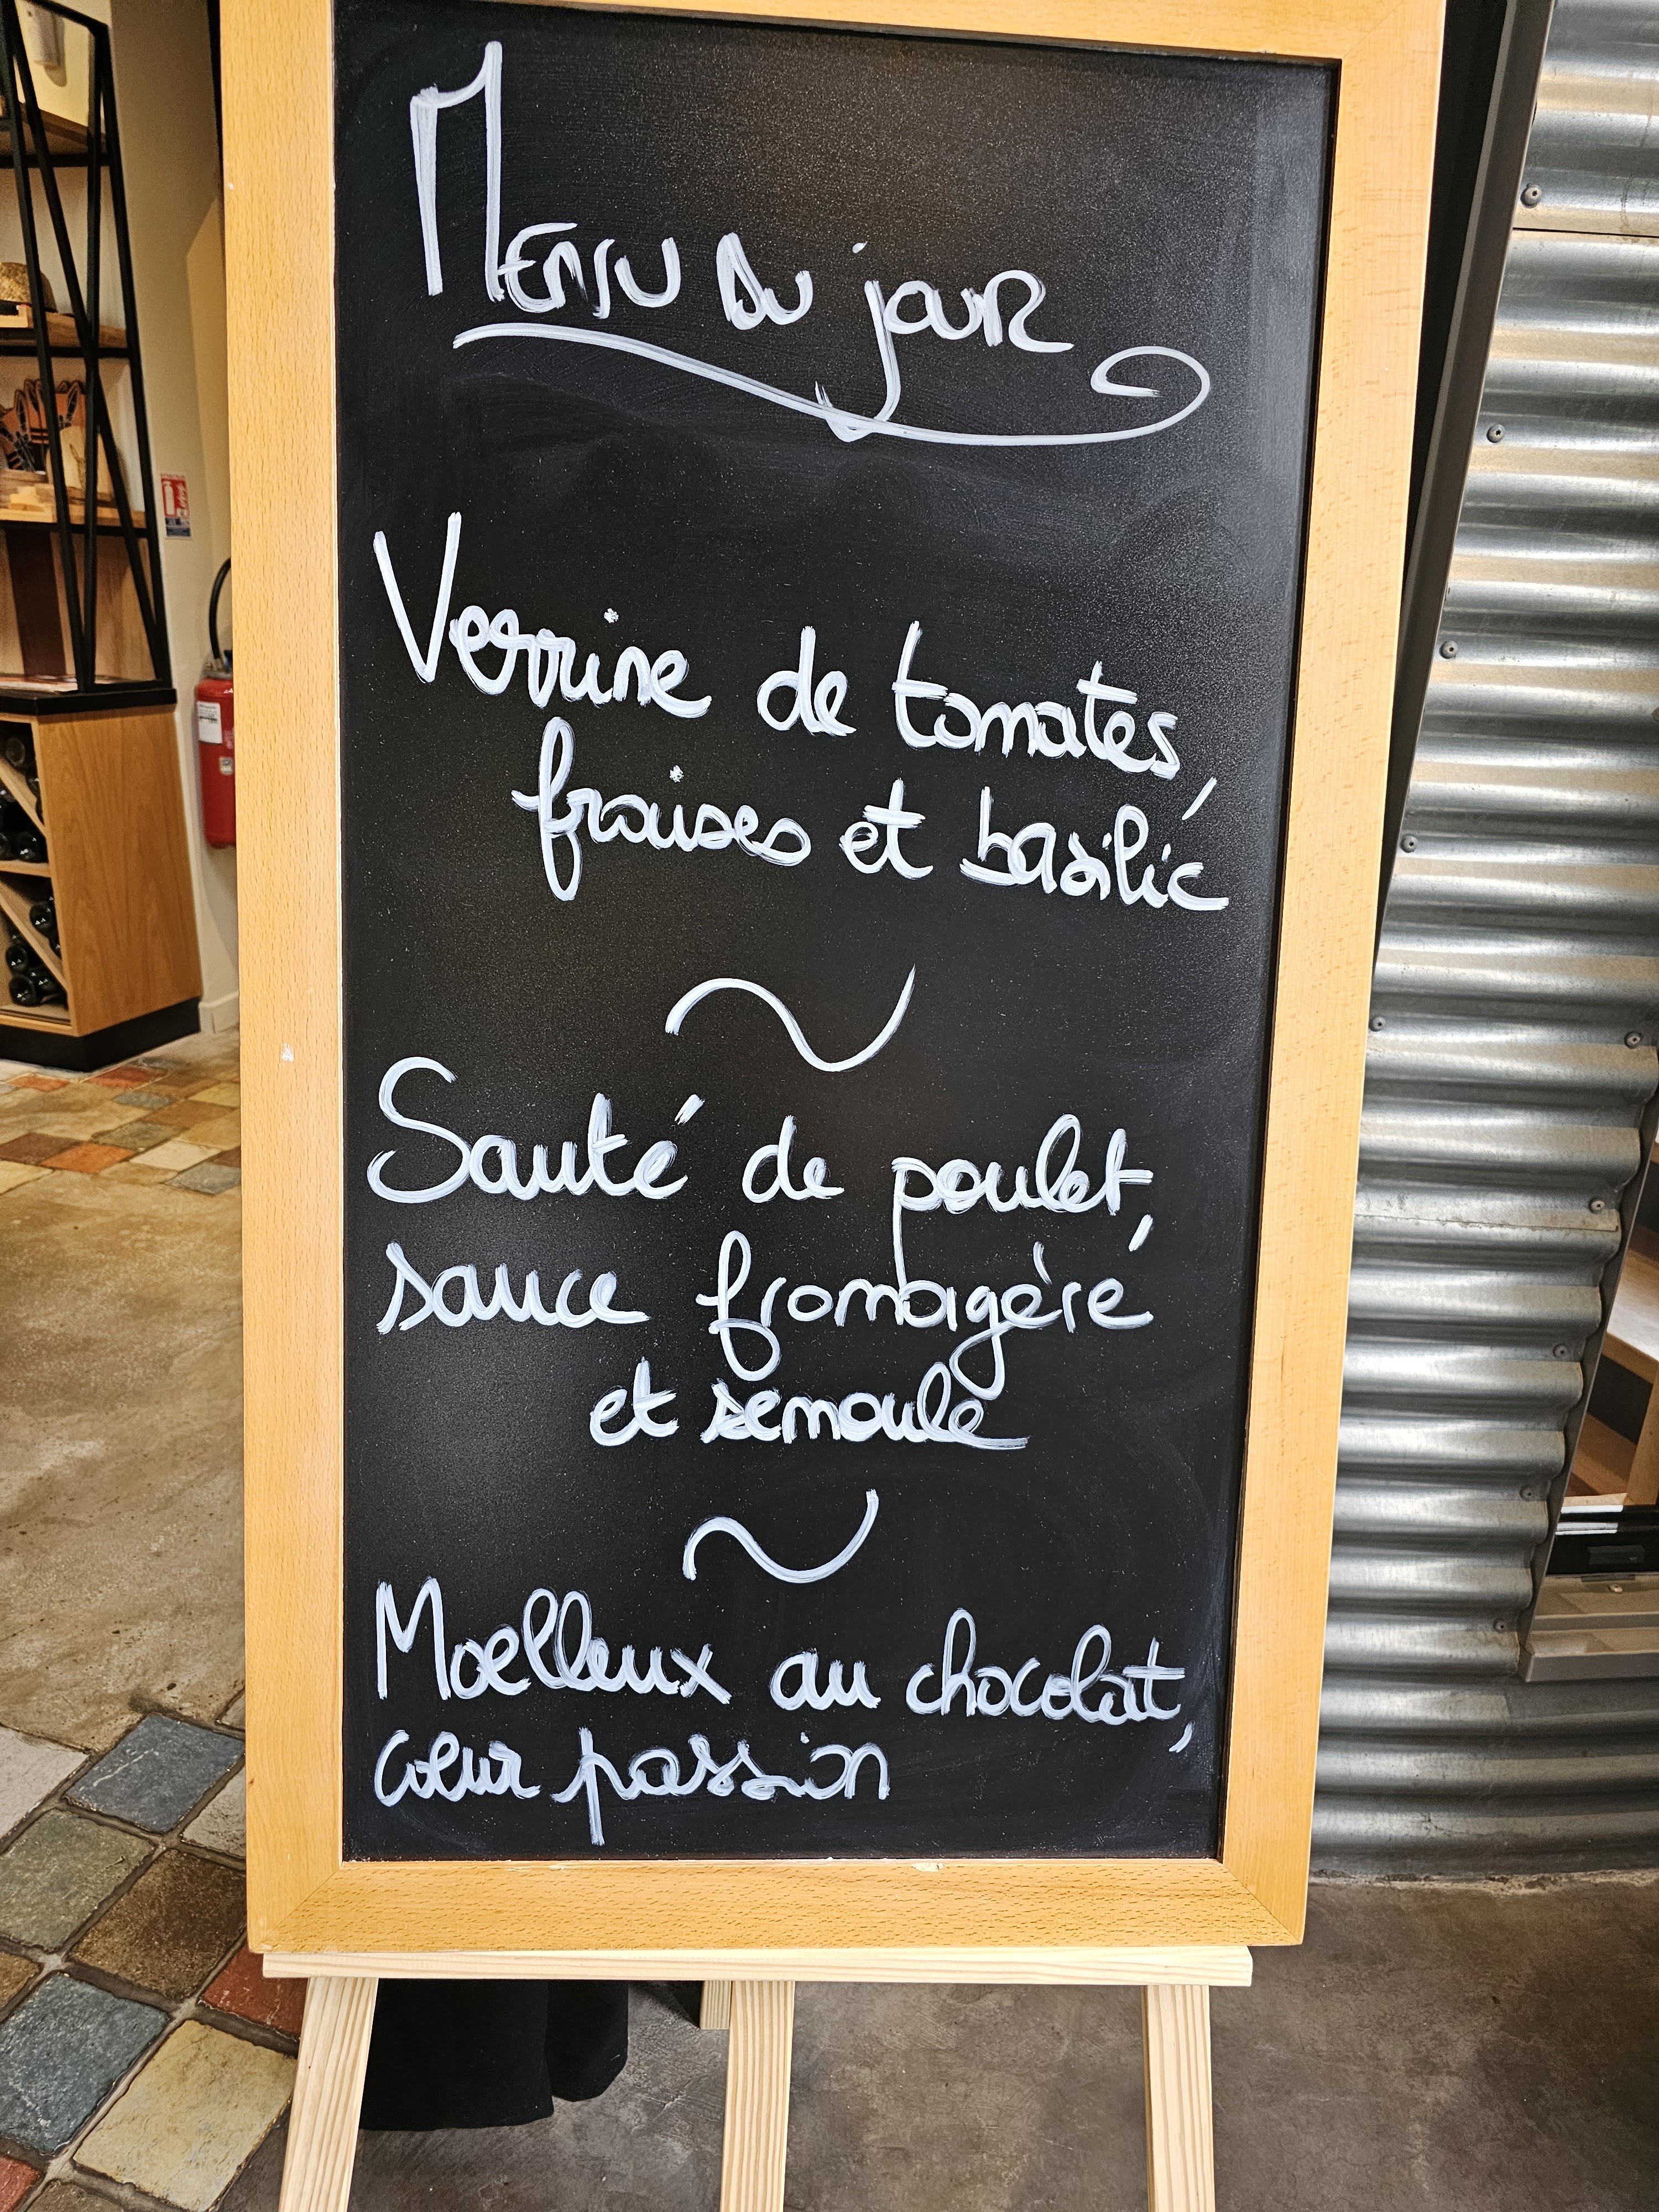 Menu du jour
Verrine de tomates,
fraises et basilic
Sauté de poulet,
sauce fromagèré
et semoule
Moelleux au chocolat,
cœur passion